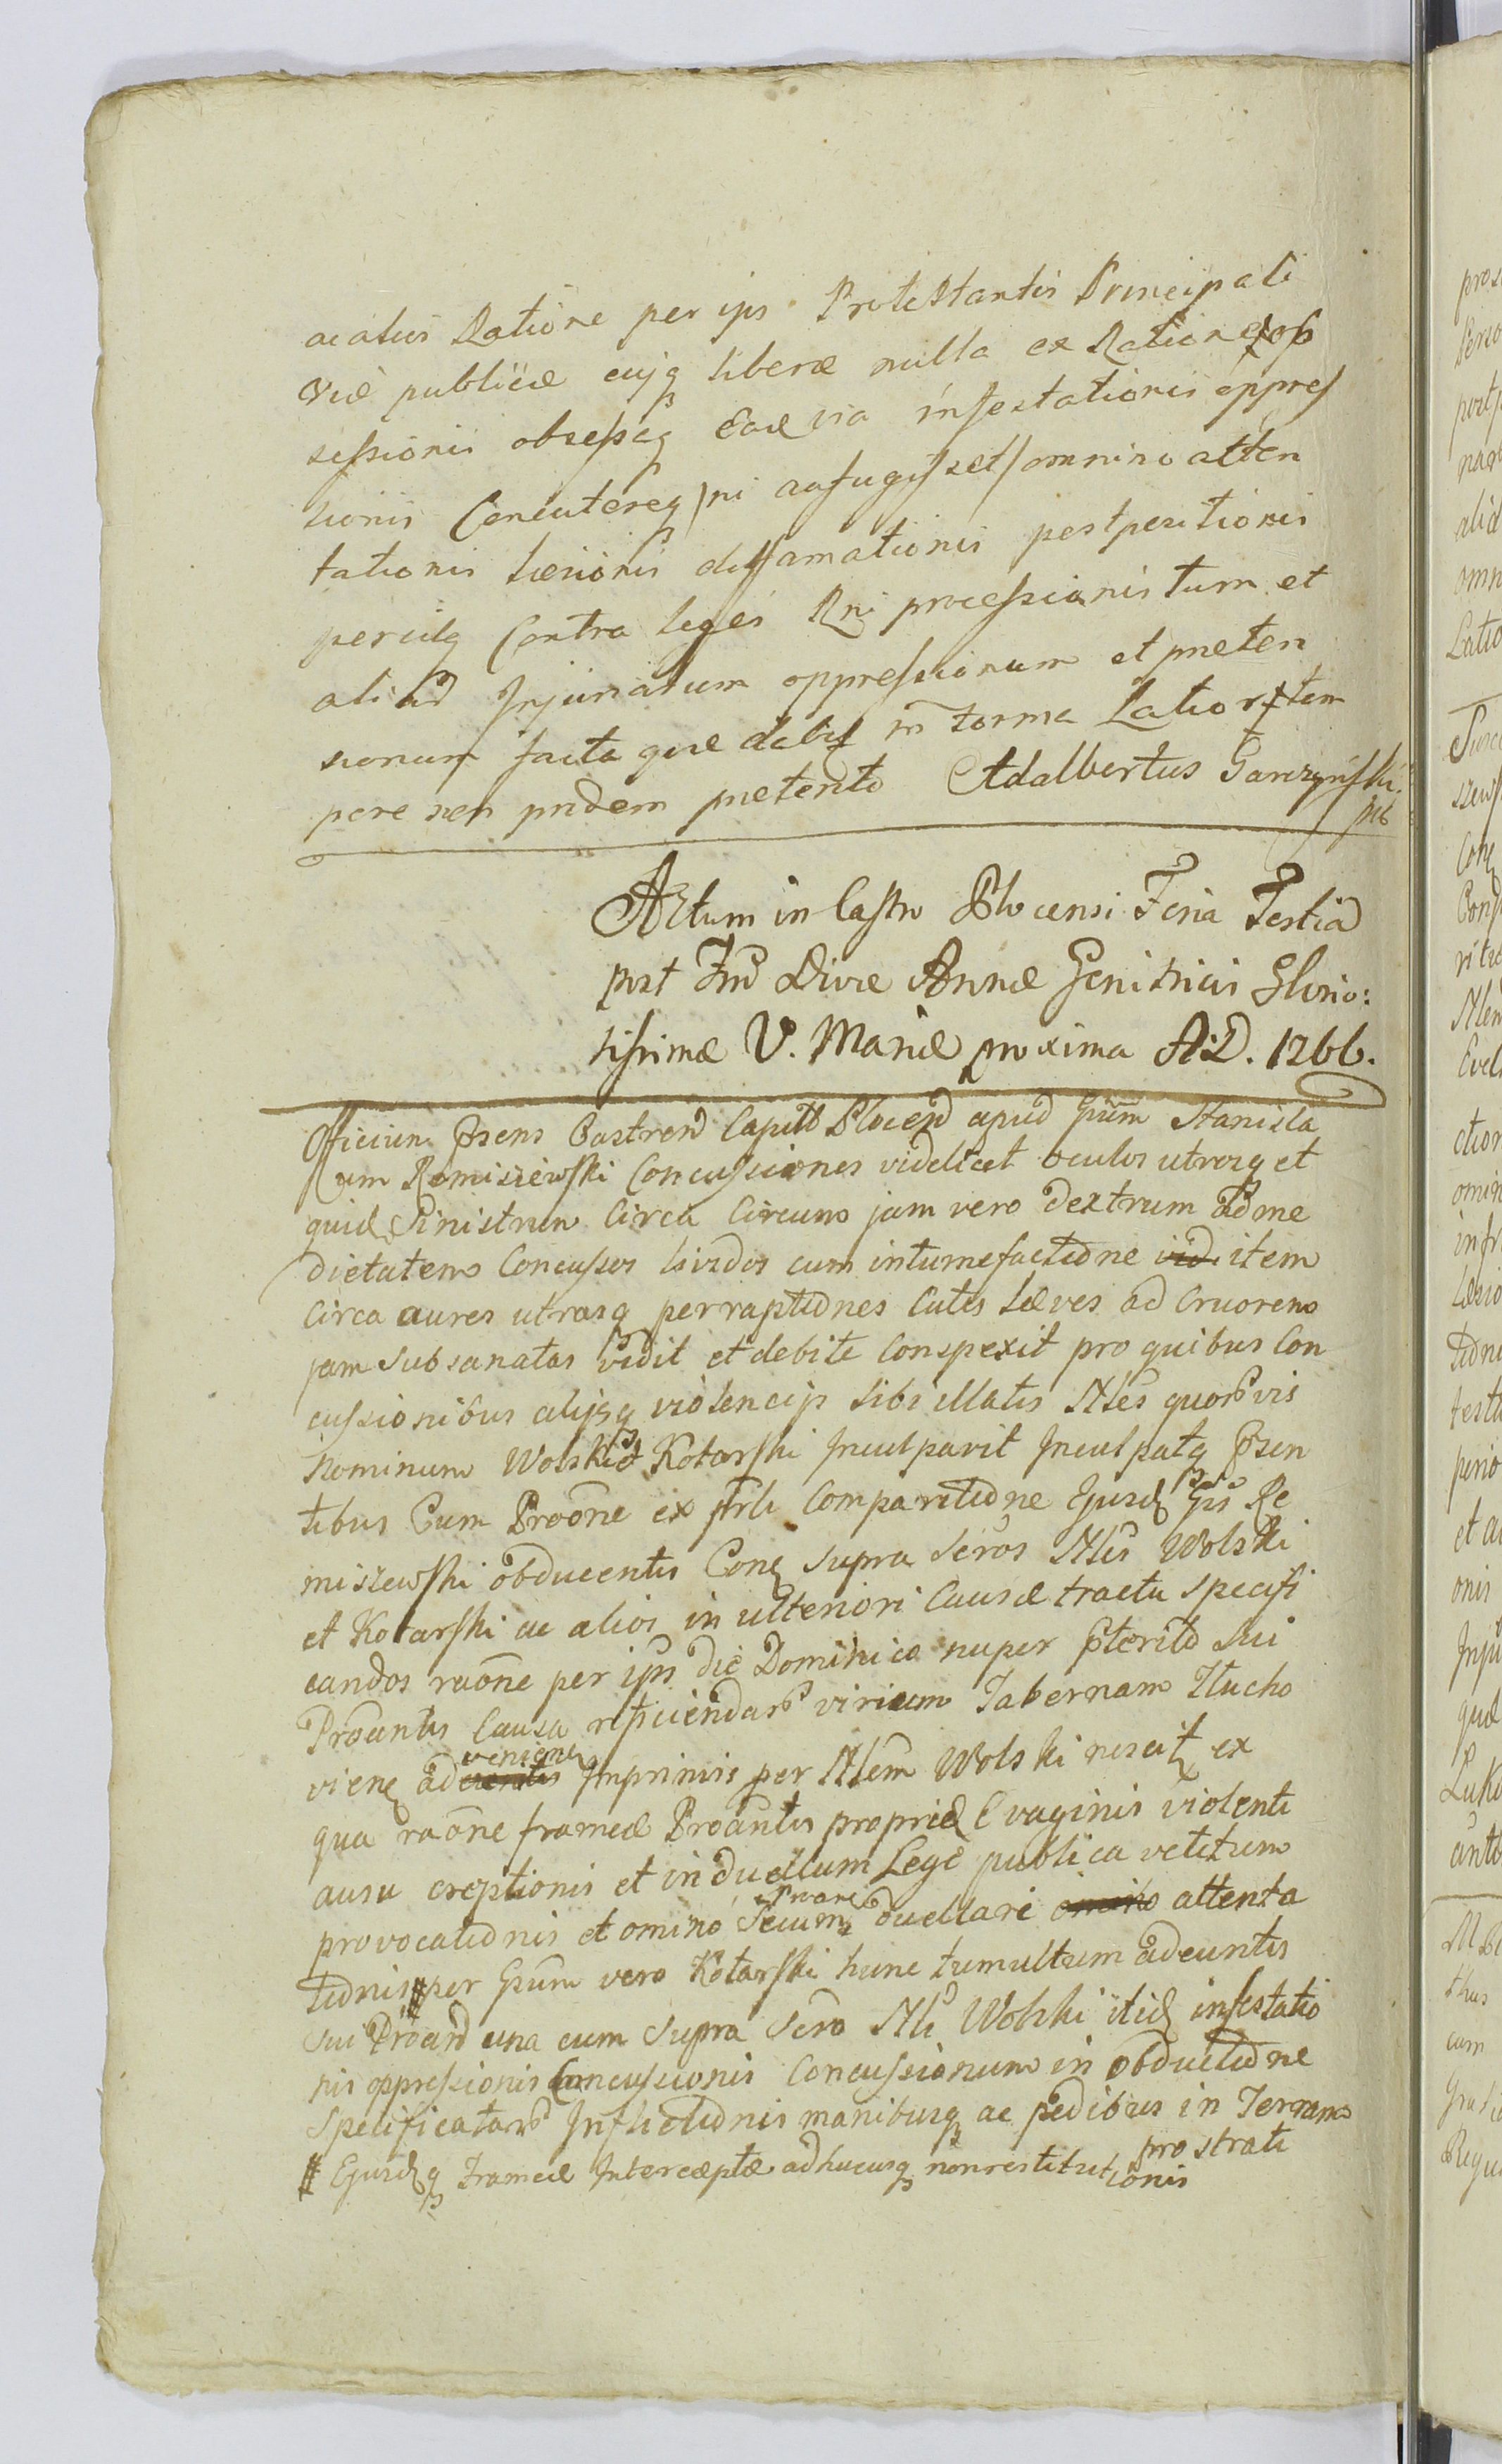 acatus Ratione per ips Protestantis Principali
Viæ publicæ cujq liberæ nulla ex Ratione pos
sessionis obsessæq Eaq via infestationis oppres
sionis Concutereq ni aufugisset omnino atten
tationis Læsionis diffamationis postpositionis
periculq Contra leges Rni processionis tum et
aliad Injuriarum oppressionum et preten
sionum facta quæ debit in forma Lationis tem
pore sen pndem pretento Adalbertus Garczynski
mp
Actum in Castro Plocensi Feria Tertia
post Fm Divæ Annæ Genitricis Glorio:
sissimæ V. Mariæ proxima A:D. 1766.
Officium Psens Castren Capitt Plocen apud Gsum Stanisla
um Remiszewski Concussiones videlicet oculos utrosq et
quid Sinistrum Circa Circum jam vero dextrum ad me
dietatem Concussos lividos cum intumefactione vid item
Circa aures utrasq perraptiones Cutis Læves ad Cruorem
jam subsanatas vidit et debite Conspexit pro quibus Con
cussionibus alijsq violencijs sibi illatis Nles quorvis
Nominum Wolski et Kotarski Inculpavit Inculpatq Psen
tibus Cum Proone ex prli Comparitione Ejusd Gsi Re
miszewski obducentis Conq supra Scros Nles Wolski
et Kotarski ac alios in ulteriori Causæ tractu specifi
candos raone per ipsos die Dominica nuper Pterito sui
Proantis Causa reficiendar virium Tabernam Tlucho
viene ad venienq Inprimis per Nlem Wolski nescit ex
qua raone frameæ Proantis propriæ Evaginis violenti
ausu ereptionis et in duellum Lege publica vetitum
provocationis et omino Secum duellari omino attenta
tionis # per Gsum vero Kotarski hunc tumultum adeuntis
sui Proan una cum supra Scro Nli Wolski itid infestatio
nis oppressionis Concussionis Concussionum in obductione
specificatar Inflictionis manibusq ac pedibus in Terram
prostrati
# Ejusdq Frameæ Interceptæ adhucusq nonrestitutionis